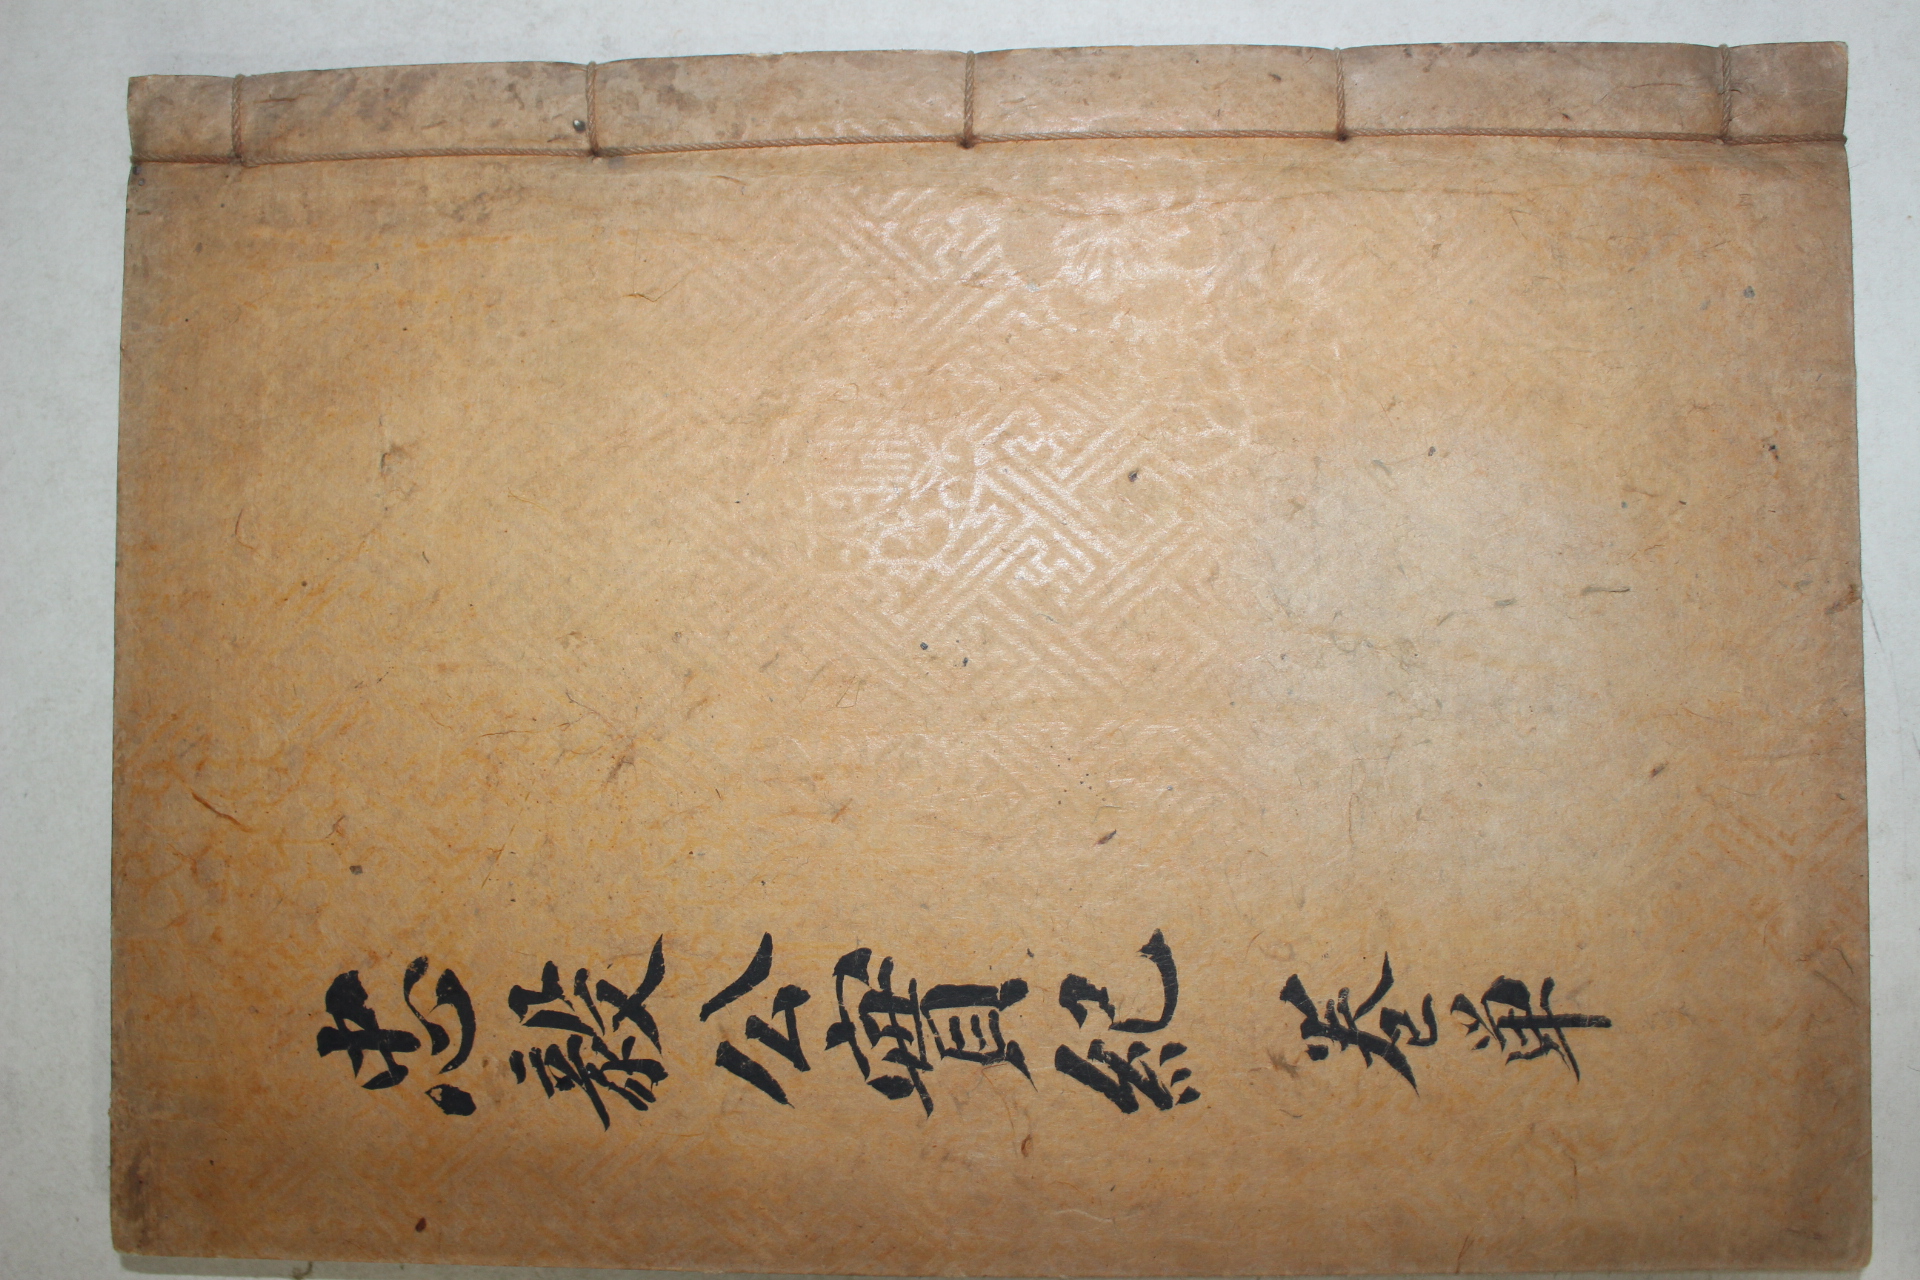 忠毅公實紀 卷單